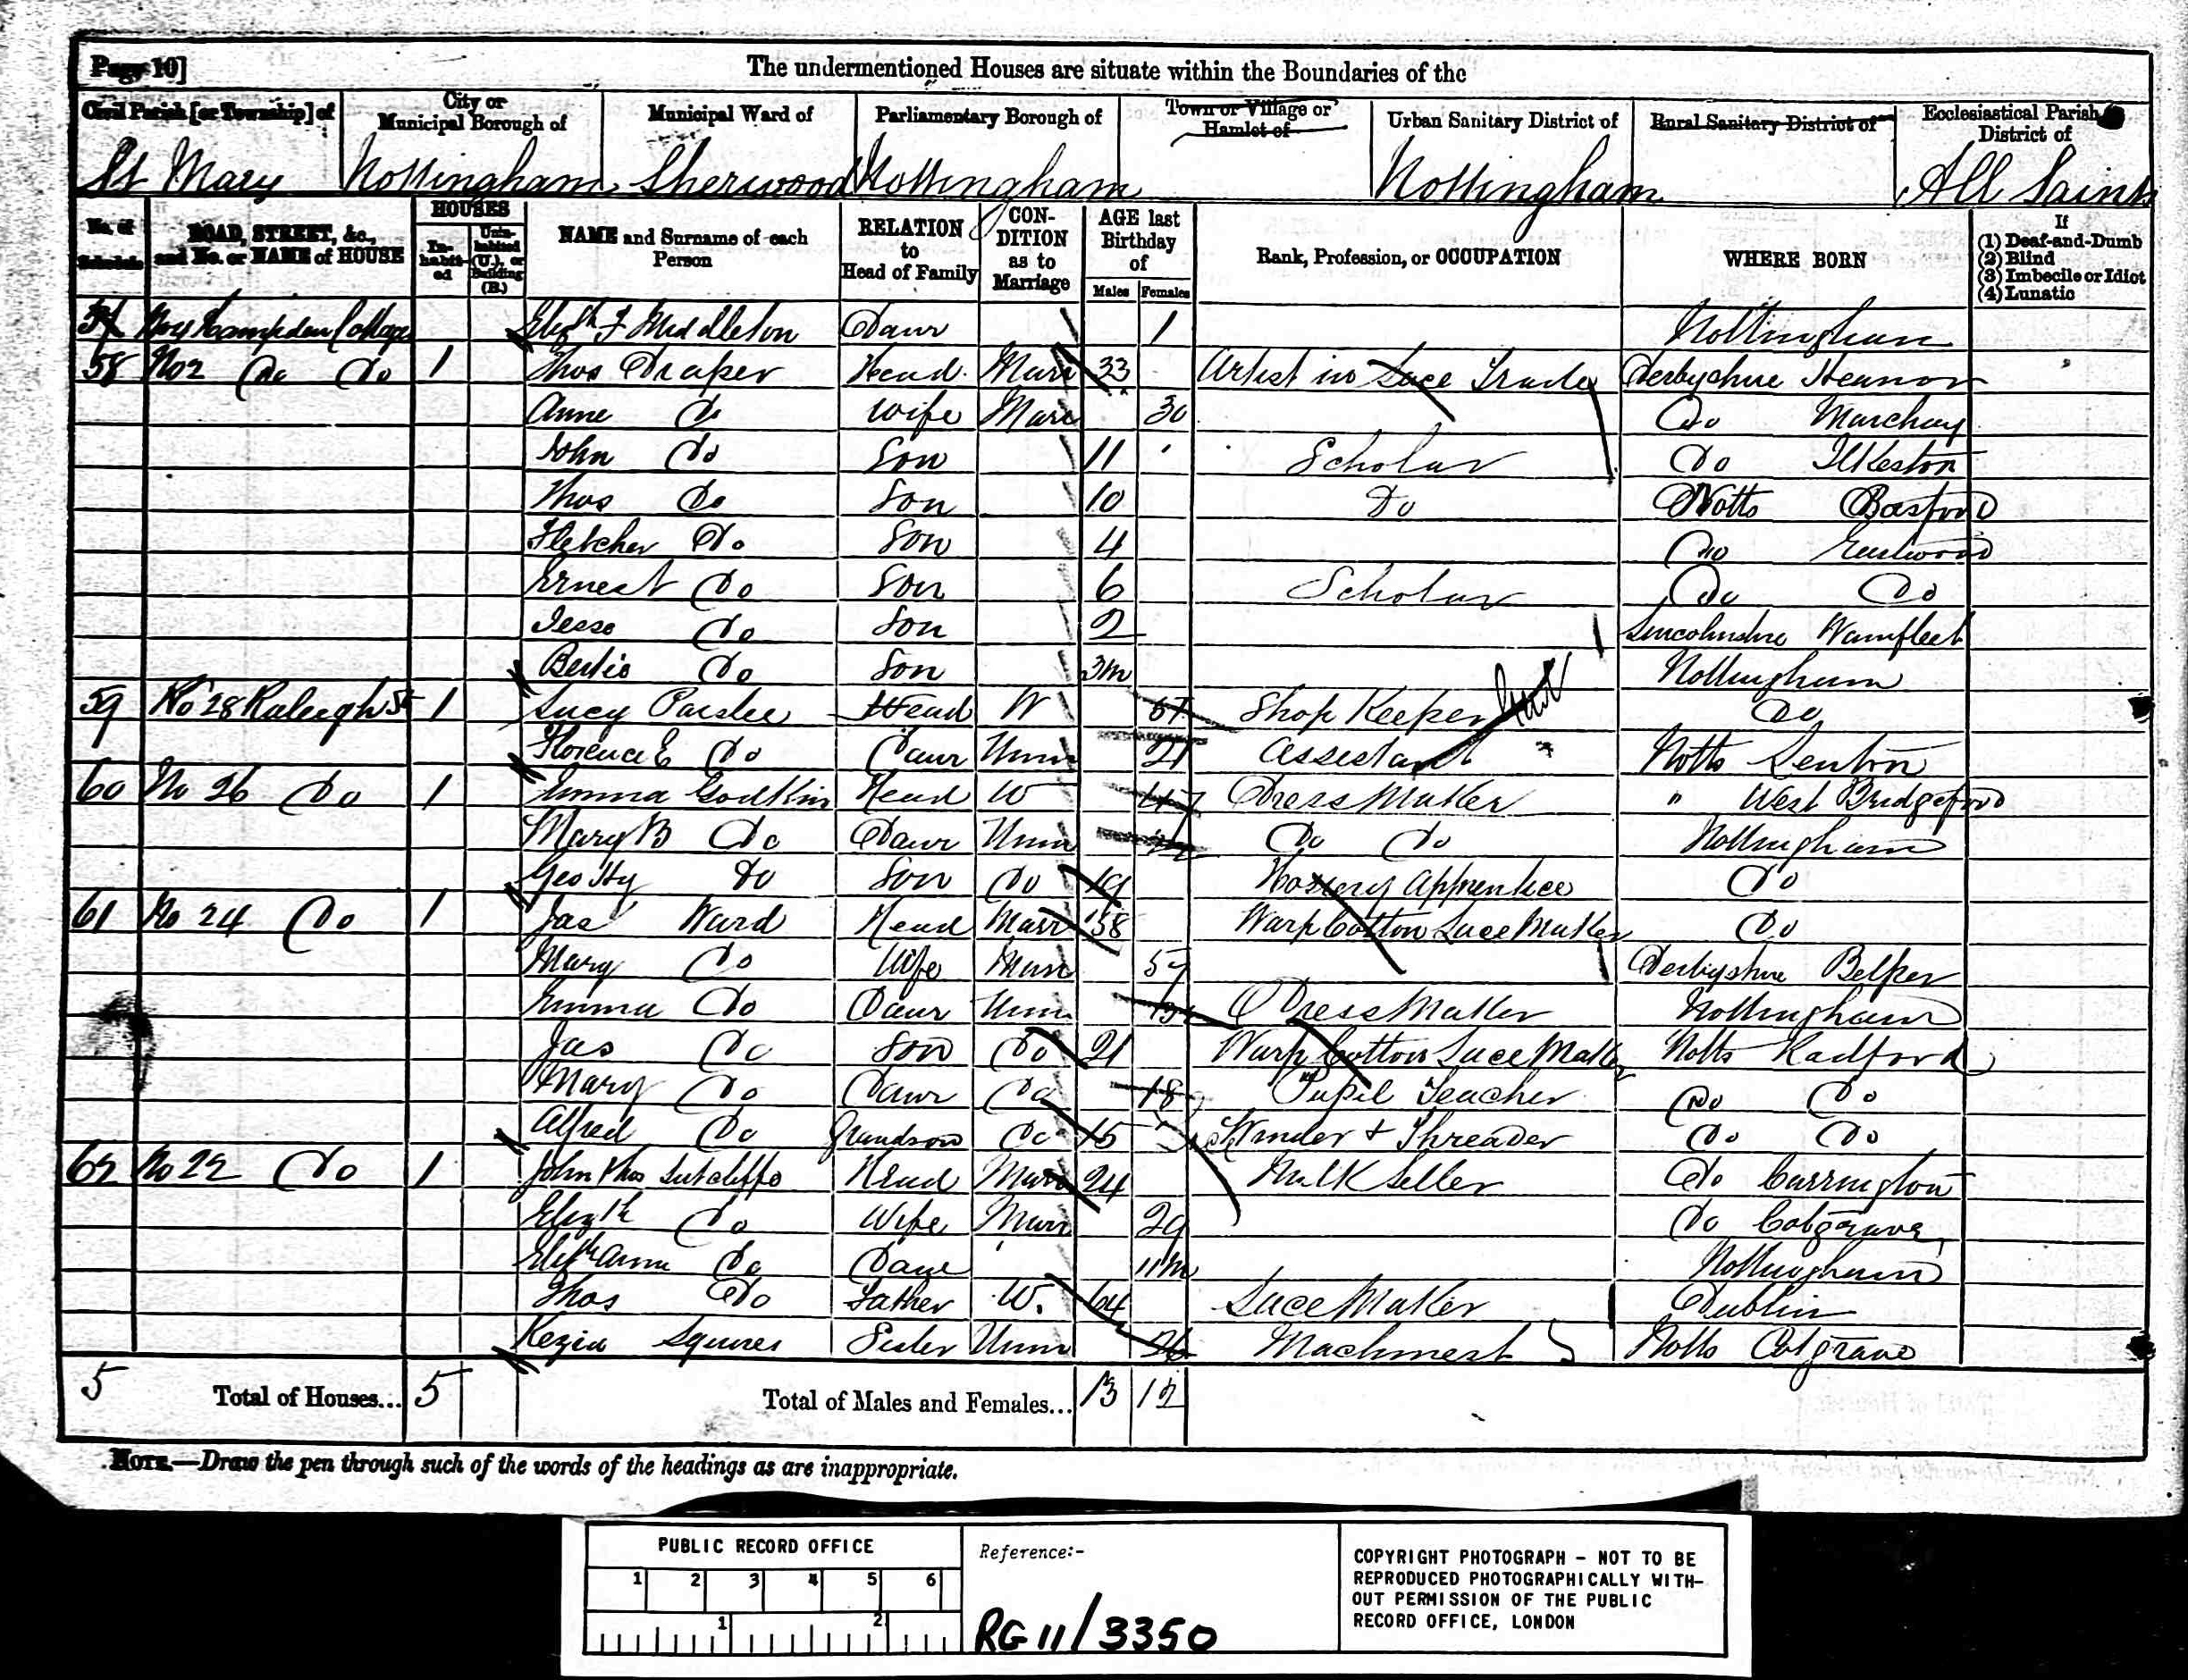 Page 10]
The undermentioned Houses are situate within the Boundaries of the
Civil Parish [or Township] of City or Municipal Borough of Municipal Ward of Parliamentary Borough of Town or Village or Hamlet of Urban Sanitary District of Rural Sanitary District of Ecclesiastical Parish District of
St Mary Nottingham Sherwood Nottingham Nottingham All Saints
No. of Schedule ROAD, STREET, &c., and No. or NAME of HOUSE HOUSES In-habit-ed Unin-habited (U.), or Building (B.) NAME and Surname of each Person RELATION to Head of Family CON-DITION as to Marriage AGE last Birthday of Males Females Rank, Profession, or OCCUPATION WHERE BORN If (1) Deaf-and-Dumb (2) Blind (3) Imbecile or Idiot (4) Lunatic
57 Hampden Cottages Elizth F Middleton Daur 1 Nottingham
58 No 2 Do Do 1 Thos Draper Head Marr 33 Artist in Lace Trade Derbyshire Heanor
Anne Do Wife Marr 30 Do Marehay
John Do Son 11 Scholar Do Ilkeston
Thos Do Son 10 Do Notts Basford
Fletcher Do Son 4 Do Eastwood
Ernest Do Son 6 Scholar Do Do
Jesse Do Son 2 Lincolnshire Wainfleet
Bertie Do Son 3m Nottingham
59 No 28 Raleigh St 1 Lucy Parslee Head W 57 Shop Keeper Do
Florence E Do Daur Unm 21 Assistant " Notts Lenton
60 No 26 Do 1 Emma Godkin Head W 47 Dress Maker " West Bridgeford
Mary B Do Daur Unm Do Do Nottingham
Geo Hy Do Son Do 19 Hosiery Apprentice Do
61 No 24 Do 1 Jas Ward Head Marr 58 Warp Cotton Lace Maker Do
Mary Do Wife Marr 57 Derbyshire Belper
Emma Do Daur Unm Dress Maker Nottingham
Jas Do Son Do 21 Warp Cotton Lace Maker Notts Radford
Mary Do Daur Do 18 Pupil Teacher Do Do
Alfred Do Grandson Do 15 Winder & Threader Do Do
62 No 22 Do 1 John Thos Sutcliffe Head Marr 24 Milk Seller Do Carrington
Elizth Do Wife Marr 29 Do Cotgrave
Elizth Anne Do Daur 11m Nottingham
Thos Do Father W. 64 Lace Maker Dublin
Kezia Squires Sister Unm 26 Machinest Notts Cotgrave
5 Total of Houses... 5 Total of Males and Females... 13 12
NOTE.—Draw the pen through such of the words of the headings as are inappropriate.
PUBLIC RECORD OFFICE
1 2 3 4 5 6
1 2
Reference:-
RG 11/3350
COPYRIGHT PHOTOGRAPH – NOT TO BE
REPRODUCED PHOTOGRAPHICALLY WITH-
OUT PERMISSION OF THE PUBLIC
RECORD OFFICE, LONDON